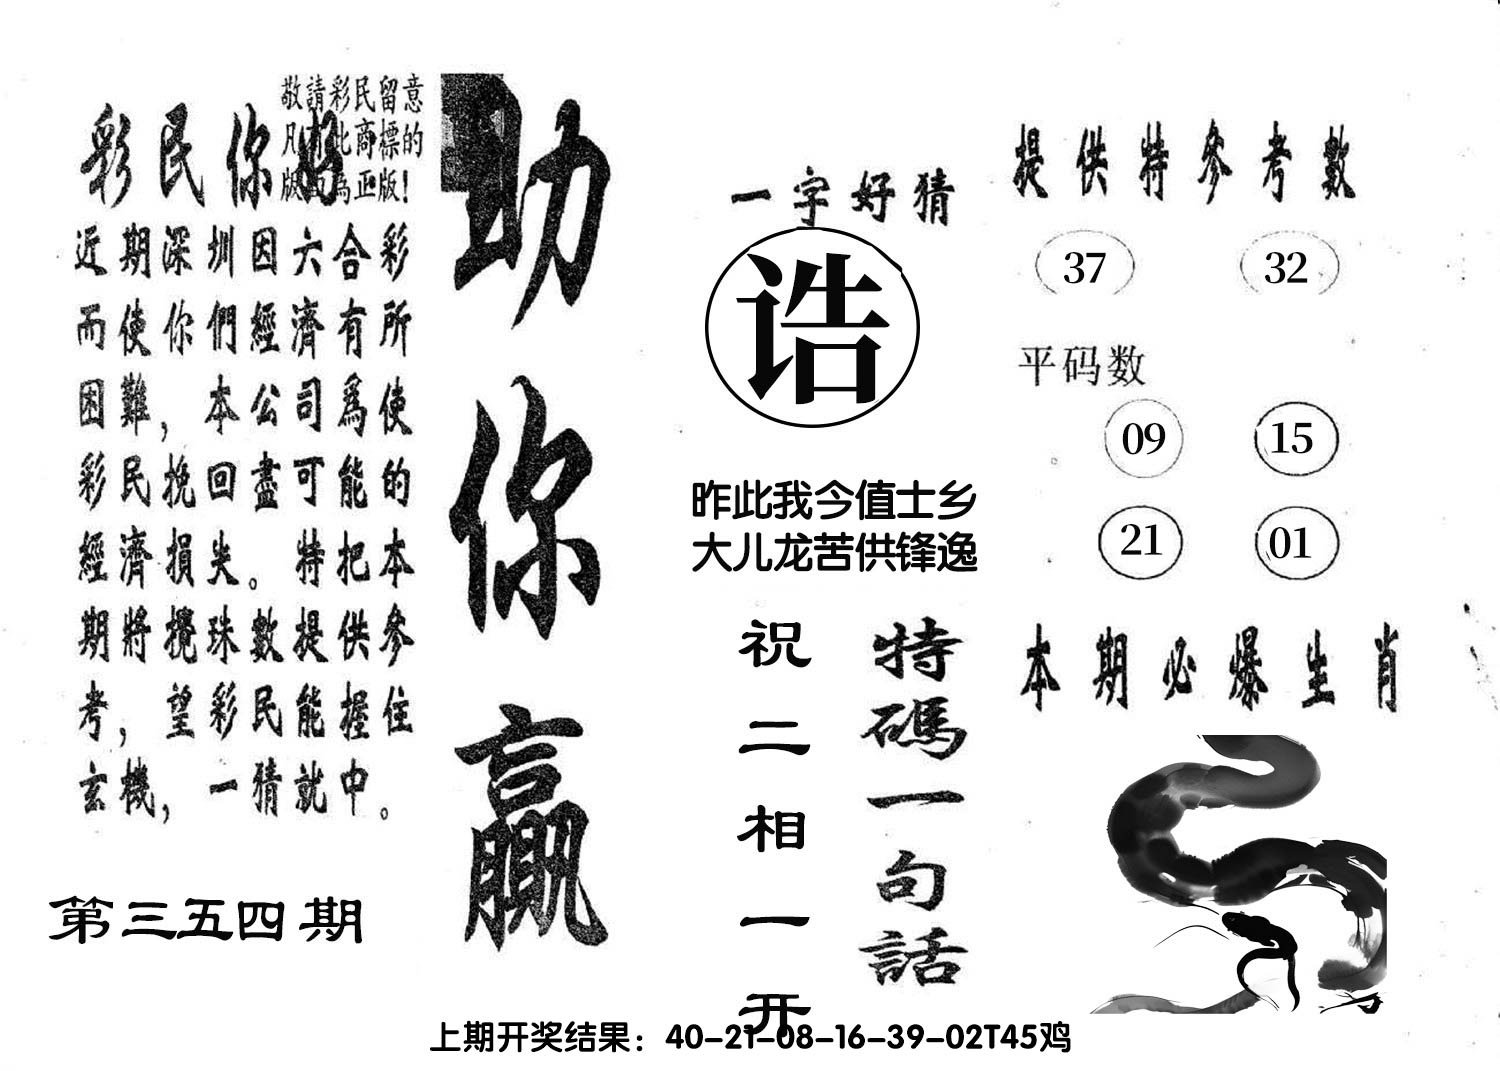 敬請彩民留意
凡有此商標的
版面為正版!
彩民你好
近期深圳因六合彩
而使你們經濟有所
困難，本公司爲使
彩民挽回盡可能的
經濟損失。特把本
期將攪珠數提供參
考，望彩民能握住
玄機，一猜就中。
第三五四期
助你贏
一字好猜
诰
昨此我今值士乡
大儿龙苦供锋逸
特碼一句話
祝二相一开
提供特參考數
37 32
平码数
09 15
21 01
本期必爆生肖
上期开奖结果：40-21-08-16-39-02T45鸡